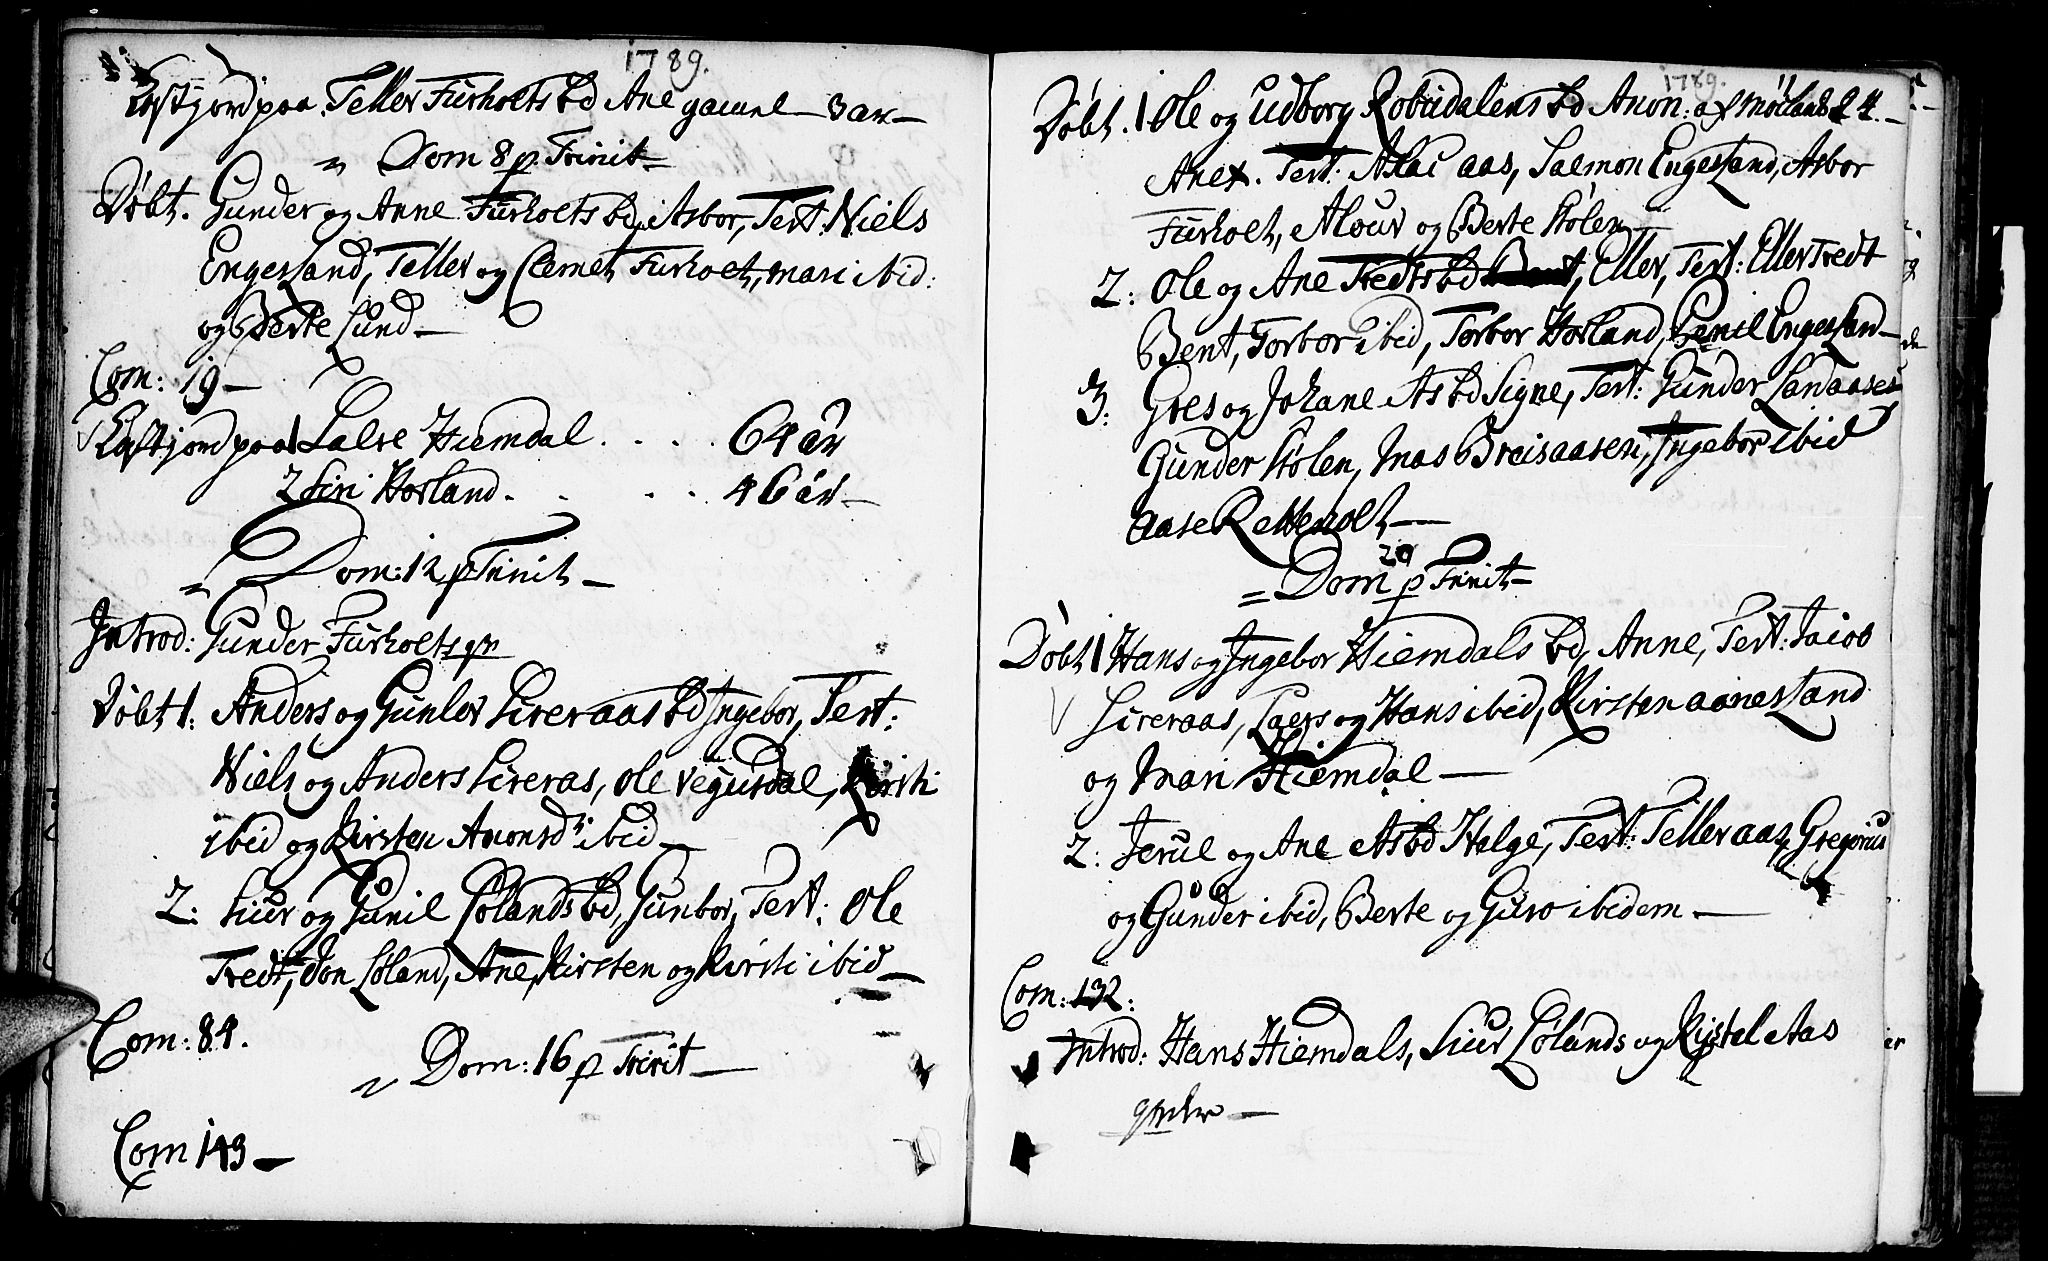 1789.
Kastjord paa Teller Furholts bd Ane gamel 3 ar
Dom 8 p. Trinit
Døbt. Gunder og Anne Furholts bd Asbor, Test: Niels
Engesland, Teller og Clemet Furholt, Mari ibid:
og Berte Lund
Com: 19
Kastjord paa 1 Lalve Hiemdal . . . . 64 år
2 Siri Horland . . . . 46 år
Dom: 12 p Trinit
Introd: Gunder Furholts qv
Døbt 1: Anders og Gunlov Sireraas bd Ingebor, Test:
Niels og Anders Sireras, Ole Vegusdal, Kirsti
ibid og Kirsten Amonsdr ibid
2: Siur og Gunil Lølands bd, Gunbor, Test: Ole
Tredt, Jon Løland, Ane, Kirsten og Kirsti ibid
Com: 84.
Dom: 16 p Trinit
Com 143
1789.
Døbt. 1 Ole og Udborg Robudalens bd Anon: af Møllands
Anex. Test: Aslac Aas, Salmon Engesland, Asbor
Furholt, og Berte Stølen
2: Ole og Ane Tredts bd Bent, Eller, Test: Eller Tredt
Bent, Torbor ibid, Torbor Horland, Gunil Engeslan
3: Goes og Johane As bd Signe, Test: Gunder Landaasen
Gunder Stølen, Breisaasen, Ingebor ibid
Aase Rettenolt
Dom 20 p Trinit
Døbt 1 Hans og Ingebor Hiemdals bd, Anne, Test: Jacob
Sireraas, Laers og Hans ibid, Kirsten Aanesland
og Mari Hiemdal
2: Jerul og Ane As bd Helge, Test: Teller Aas, Gregorius
og Gunder ibid, Berte og Guro ibidem
Com: 132:
Introd: Hans Hiemdals, Siur Lølands og Kistel Aas